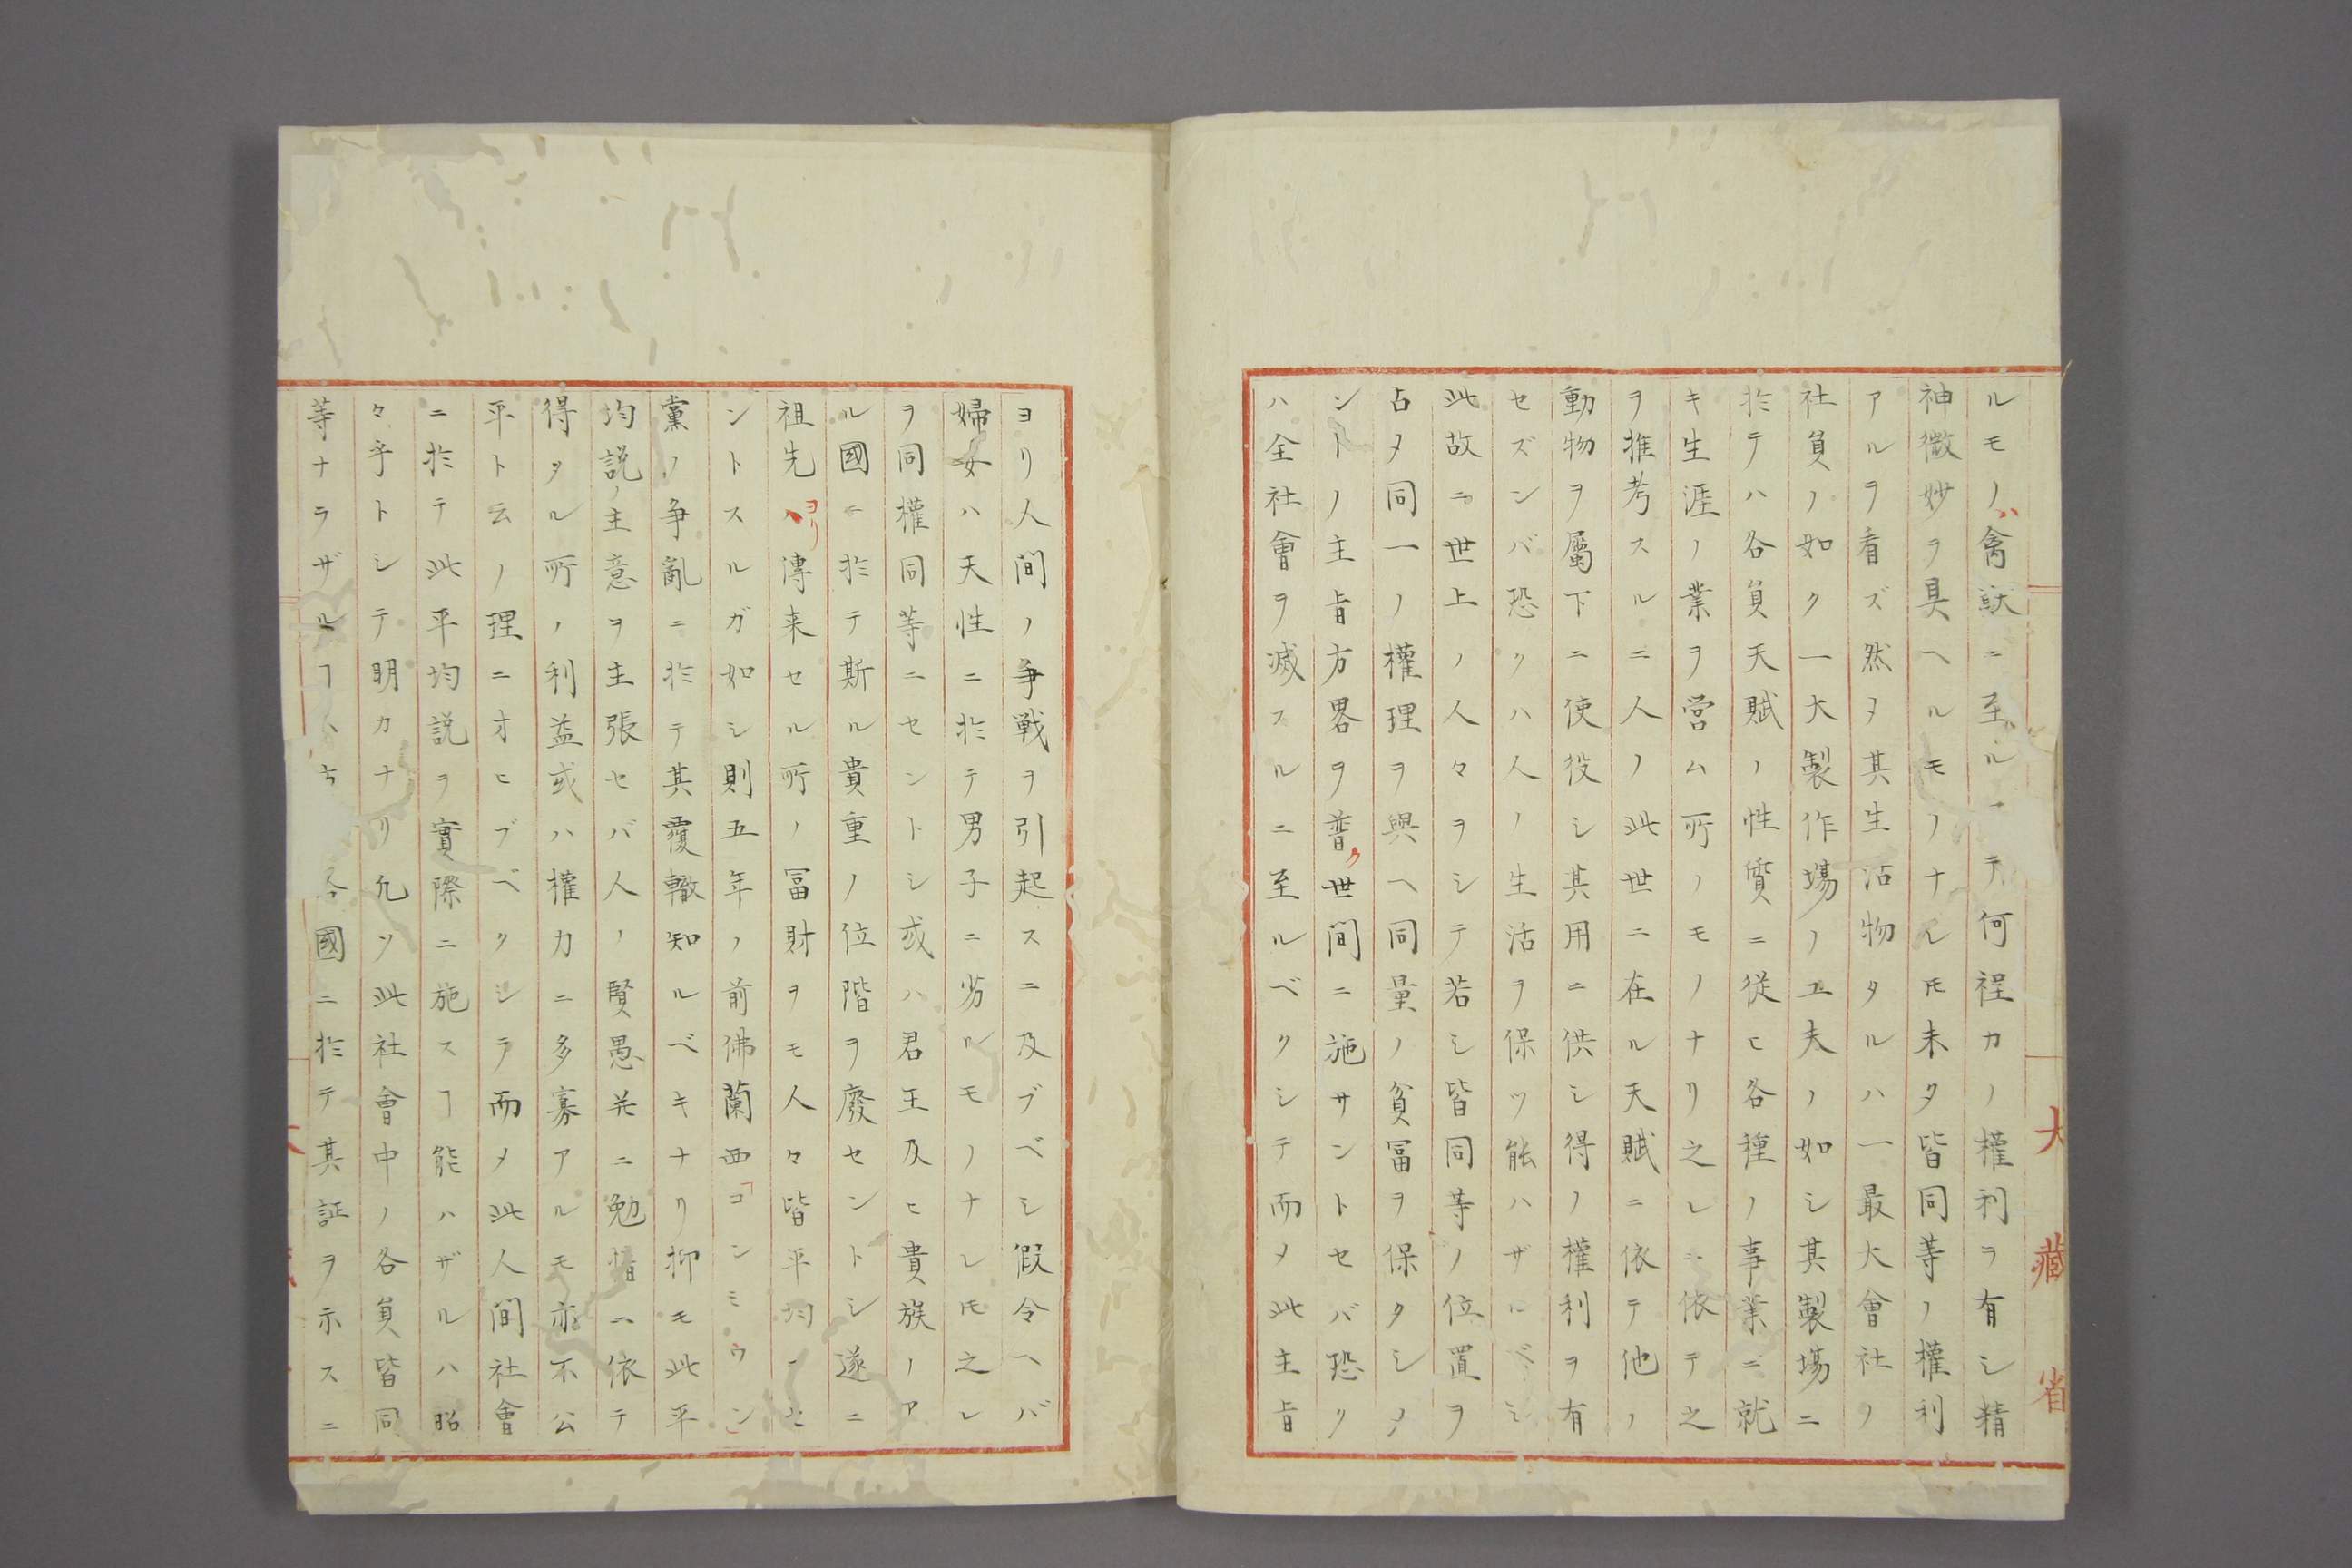 ルモノハ禽獣ニ至ルニテ何程カノ權利ヲ有シ精
神微妙ヲ具ヘルモノナレ𪜈未タ皆同等ノ權利
アルヲ看ズ然ヲ其生活物タルハ一最大會社ノ
社負ノ如ク一大製作塲ノ工夫ノ如シ其製塲ニ
於テハ各負天賦ノ性質ニ從ヒ各種ノ事業ニ就
キ生涯ノ業ヲ営ム所ノモノナリ之レニ依テ之
ヲ推考スルニ人ノ此世ニ在ル天賦ニ依テ他ノ
動物ヲ屬下ニ使役シ其用ニ供シ得ノ權利ヲ有
セズンバ恐クハ人ノ生活ヲ保ツ能ハザルベシ
此故ニ世上ノ人々ヲシテ若シ皆同等ノ位置ヲ
占メ同一ノ權理ヲ與ヘ同量ノ貧冨ヲ保タシメ
ントノ主旨方畧ヲ普ク世間ニ施サントセバ恐ク
ハ全社會ヲ滅スルニ至ルベクシテ而メ此主旨
ヨリ人間ノ争戦ヲ引起スニ及ブベシ假令ヘバ
婦女ハ天性ニ於テ男子ニ劣ルモノナレ𪜈之レ
ヲ同權同等ニセントシ或ハ君王及ヒ貴族ノア
ル國ニ於テ斯ル貴重ノ位階ヲ廢セントシ遂ニ
祖先ヨリ傳来セル所ノ冨財ヲモ人々皆平均ニセ
ントスルガ如シ則五年ノ前佛蘭西「コンミウン」
黨ノ争亂ニ於テ其覆轍知ルベキナリ抑モ此平
均説ノ主意ヲ主張セバ人ノ賢愚并ニ勉惰ニ依テ
得タル所ノ利益或ハ權力ニ多寡アルモ亦不公
平ト云ノ理ニオヒブベクシテ而メ此人間社會
ニ於テ此平均説ヲ實際ニ施スヿ能ハザルハ昭
々乎トシテ明カナリ允ソ此社會中ノ各負皆同
等ナラザルヿハ 各國ニ於テ其証ヲ示スニ
大藏省